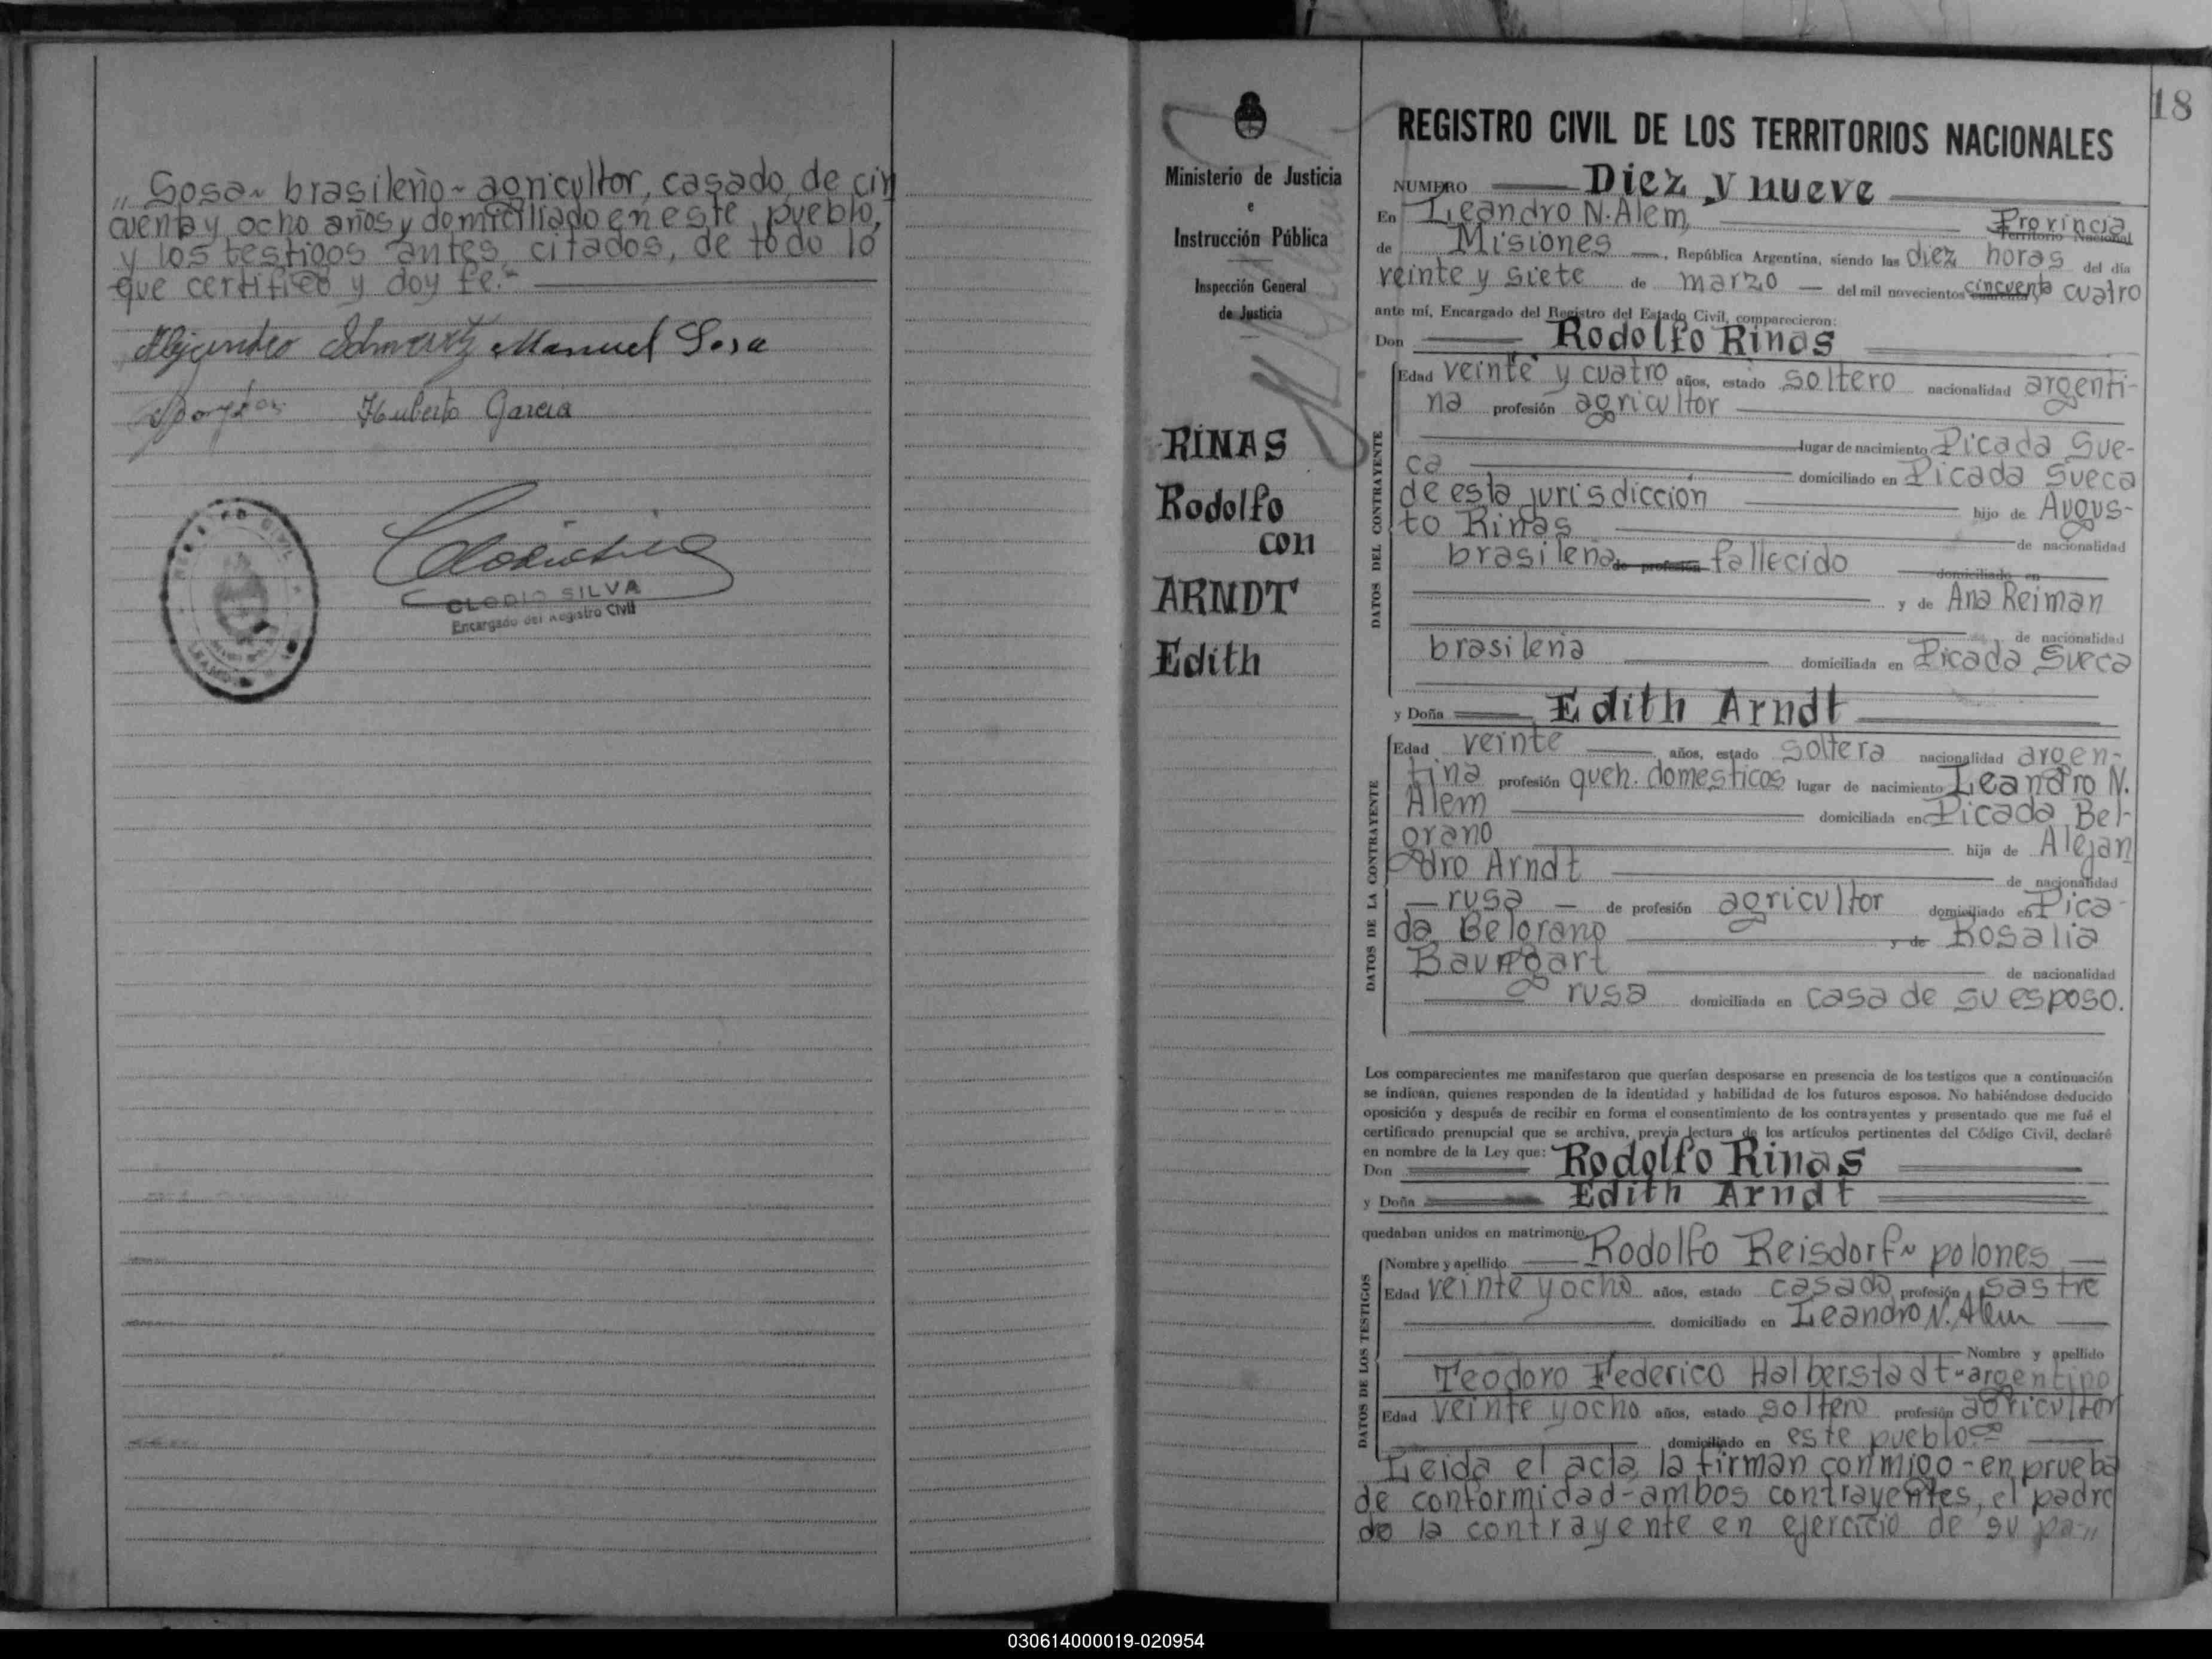 „ Sosa ~ brasileño ~ agricultor, casado, de cin
cuenta y ocho años y domiciliado en este pueblo,
y los testigos antes citados, de todo lo
que certifico y doy fe.-
Alejandro Schwartz Manuel Sosa
Huberto Garcia
CLODIO SILVA
Encargado del Registro Civil
18
Ministerio de Justicia
e
Instrucción Pública
Inspección General
de Justicia
RINAS
Rodolfo
con
ARNDT
Edith
REGISTRO CIVIL DE LOS TERRITORIOS NACIONALES
NUMERO Diez y nueve
En Leandro N. Alem, Provincia
Territorio Nacional
de Misiones, República Argentina, siendo las diez horas del día
veinte y siete de marzo del mil novecientos cuarenta cincuenta cuatro
ante mí, Encargado del Registro del Estado Civil, comparecieron:
Don Rodolfo Rinas
DATOS DEL CONTRAYENTE
Edad veinte y cuatro años, estado soltero nacionalidad argenti-
na profesión agricultor
lugar de nacimiento Picada Sue-
ca domiciliado en Picada Sueca
de esta jurisdicción hijo de Augus-
to Rinas de nacionalidad
brasileña de profesión fallecido domiciliado en
y de Ana Reiman
de nacionalidad
brasileña domiciliada en Picada Sueca
y Doña Edith Arndt
DATOS DE LA CONTRAYENTE
Edad veinte años, estado soltera nacionalidad argen-
tina profesión queh. domesticos lugar de nacimiento Leandro N.
Alem domiciliada en Picada Bel-
grano hija de Alejan
dro Arndt de nacionalidad
rusa de profesión agricultor domiciliado en Pica-
da Belgrano y de Rosalia
Baumgart de nacionalidad
rusa domiciliada en casa de su esposo.
Los comparecientes me manifestaron que querían desposarse en presencia de los testigos que a continuación
se indican, quienes responden de la identidad y habilidad de los futuros esposos. No habiéndose deducido
oposición y después de recibir en forma el consentimiento de los contrayentes y presentado que me fué el
certificado prenupcial que se archiva, previa lectura de los artículos pertinentes del Código Civil, declaré
en nombre de la Ley que:
Don Rodolfo Rinas
y Doña Edith Arndt
quedaban unidos en matrimonio.
DATOS DE LOS TESTIGOS
Nombre y apellido Rodolfo Reisdorf ~ polones
Edad veinte y ocho años, estado casado profesión sastre
domiciliado en Leandro N. Alem
Nombre y apellido
Teodoro Federico Halberstadt - argentino
Edad veinte y ocho años, estado soltero profesión agricultor
domiciliado en este pueblo.
Leida el acta, la firman conmigo - en prueba
de conformidad - ambos contrayentes, el padre
de la contrayente en ejercicio de su pa„
030614000019-020954